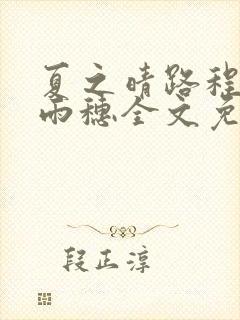 夏之晴路程
雨穗全文免
段正淳